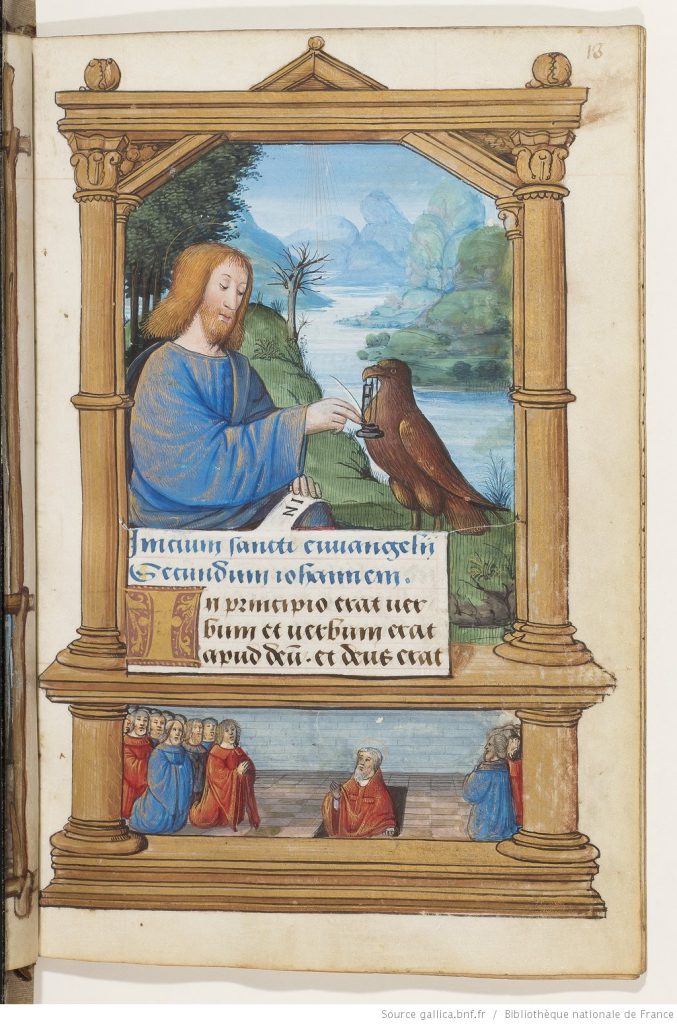 18
IN
Inicium sancti euuangelij
Secundum iohannem.
In principio erat uer
bum et uerbum erat
apud deū. et deus erat
Source gallica.bnf.fr / Bibliothèque nationale de France